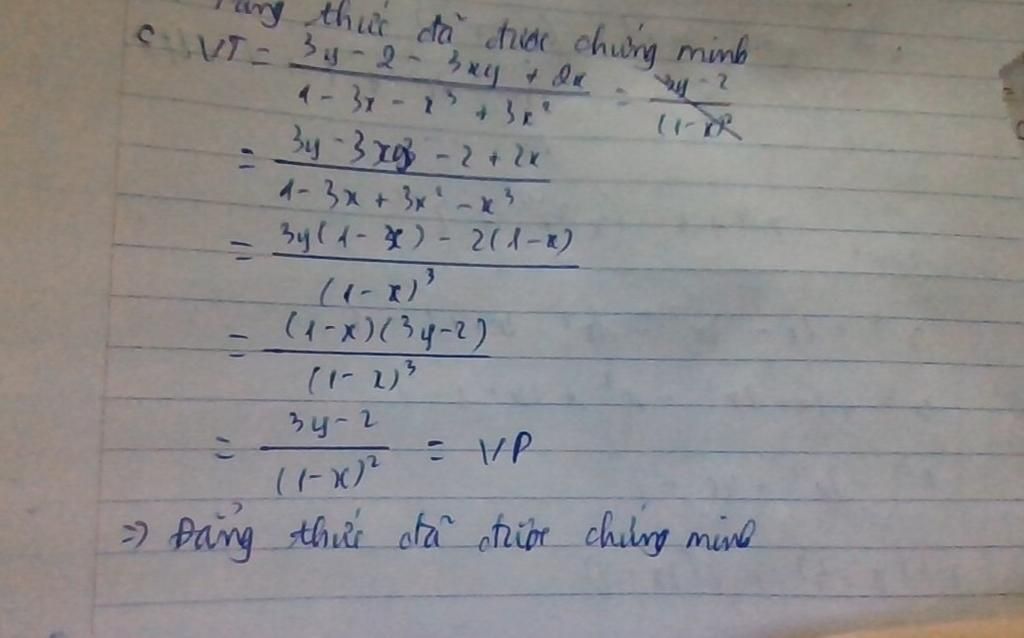 thức đã được chứng minh
c VT = (3y - 2 - 3xy + 2x)/(1 - 3x - x³ + 3x²) = (3y - 2)/(1-x)²
= (3y - 3xy - 2 + 2x)/(1 - 3x + 3x² - x³)
= (3y(1 - x) - 2(1-x))/(1-x)³
= ((1-x)(3y-2))/(1-x)³
= (3y-2)/(1-x)² = VP
=> Đẳng thức đã được chứng minh